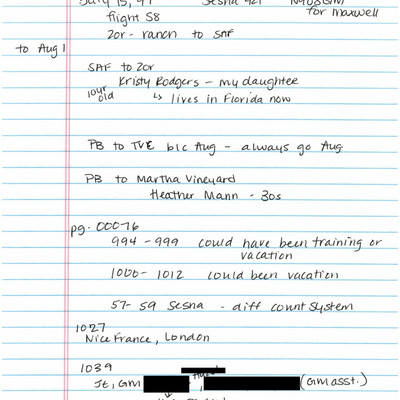 July 15, 97 Sesna 421 N908GM
flight 58 for Maxwell
Zor - ranch to SAF
to Aug 1
SAF to Zor
Kristy Rodgers - my daughter
10yr old ↳ lives in Florida now
PB to TVE b/c Aug - always go Aug
PB to Martha Vineyard
Heather Mann - 30s
pg. 00076
994 - 999 could have been training or
vacation
1000 - 1012 could been vacation
57 - 59 Sesna - diff count system
1027
Nice France, London
1039
JE, GM , (GM asst.)